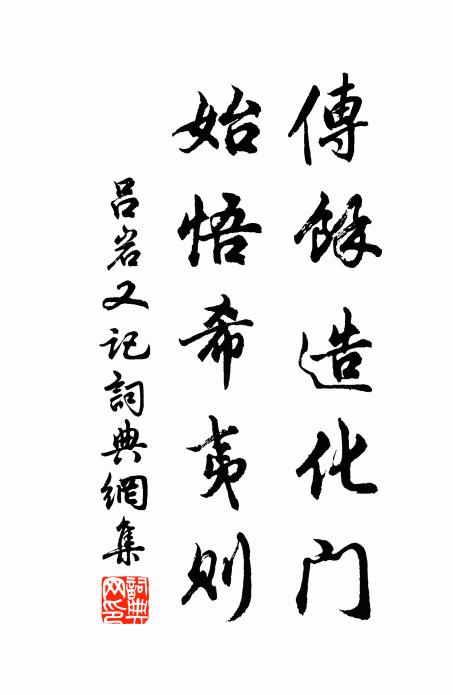 傳餘造化門
始悟希夷則
吕岩又记詞典網集
詞典网印